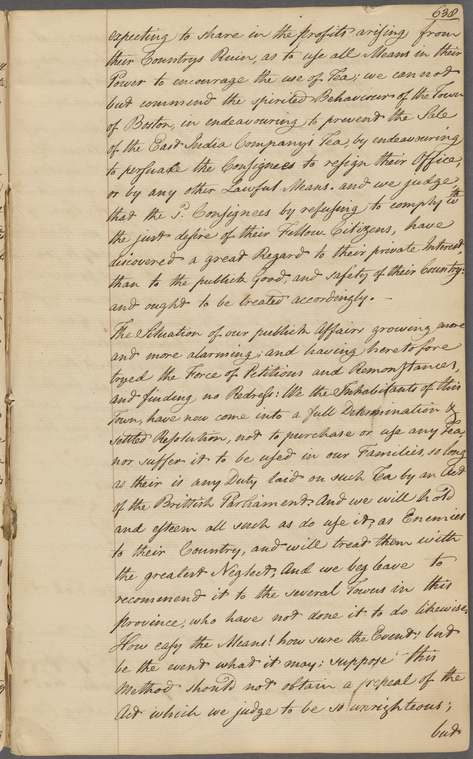 638
expecting to share in the profits arising from
their Countrys Ruin, as to use all Means in their
Power to encourage the use of Tea; we cannot
but commend the spirited Behaviour of the Town
of Boston, in endeavouring to prevent the Sale
of the East India Companys Tea, by endeavouring
to persuade the Consignees to resign their Office,
or by any other Lawful Means. and we judge
that the sd. Consignees by refusing to comply wth
the just desire of their Fellow Citizens, have
discovered a great Regard to their private Interest
than to the publick Good, and safety of their Country:
and ought to be treated accordingly. —
The Situation of our publick Affairs growing more
and more alarming; and having heretofore
tryed the Force of Petitions and Remonstrances,
and finding no Redress: We the Inhabitants of this
Town, have now come into a full Determination &
settled Resolution, not to purchase or use any Tea,
nor suffer it to be used in our Families, so long
as their is any Duty laid on such Tea by an Act
of the Brittish Parliament. And we will hold
and esteem all such as do use it, as Enemies
to their Country, and will treat them with
the greatest Neglect, And we beg leave to
recommend it to the several Towns in this
province, who have not done it to do likewise,
How easy the Means! how sure the Event! but
be the event what it may; suppose this
Method should not obtain a repeal of the
Act which we judge to be so unrighteous;
but